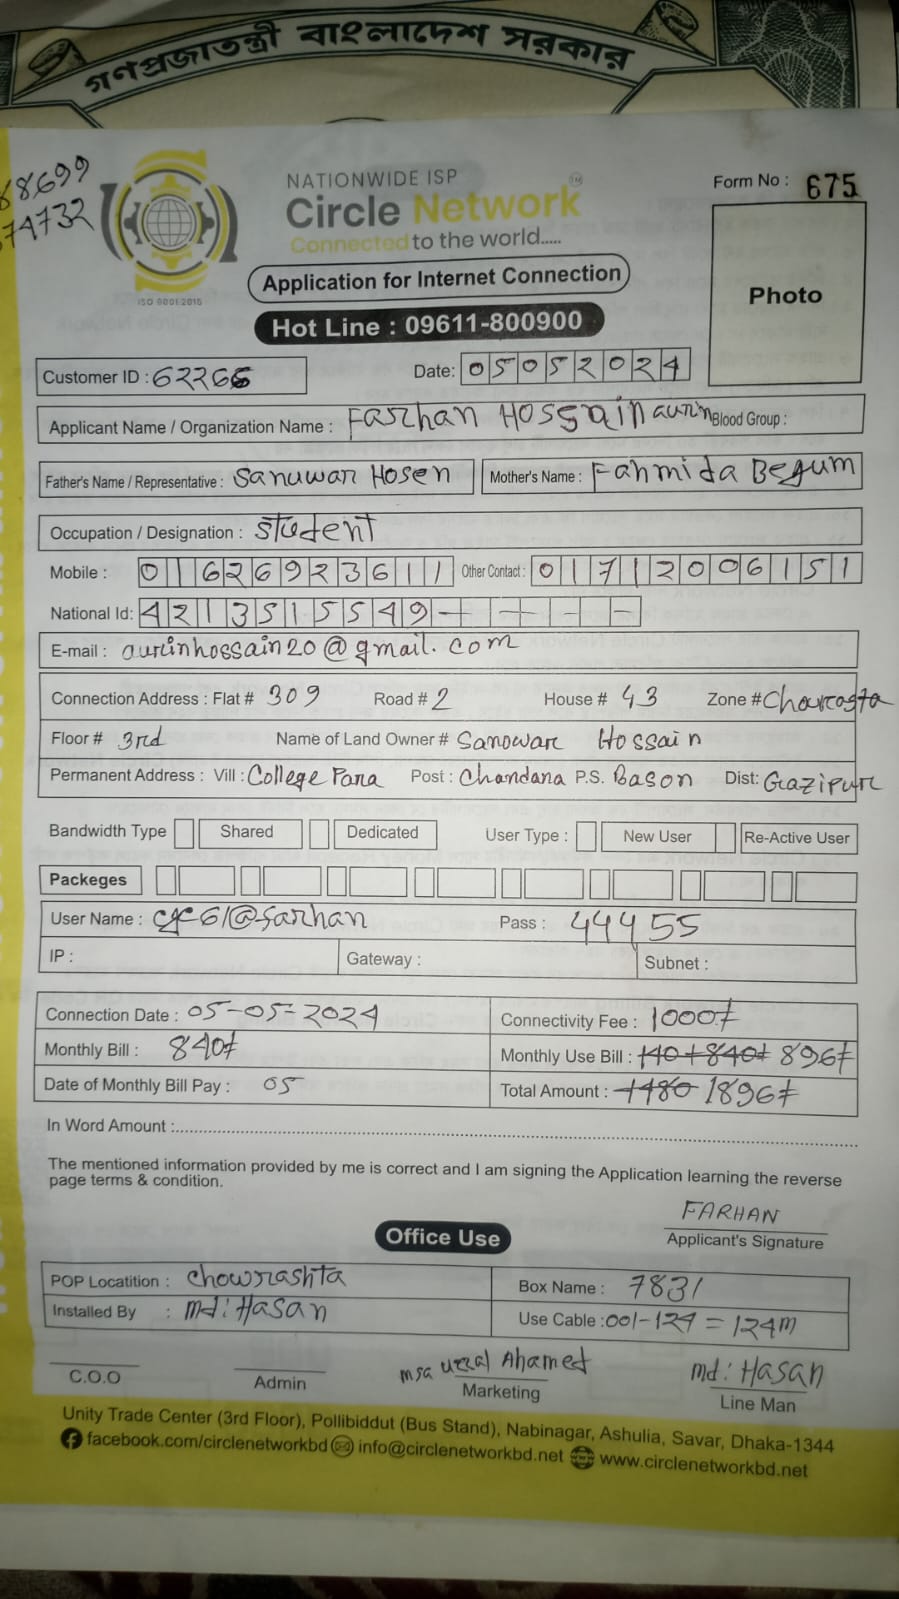 গণপ্রজাতন্ত্রী বাংলাদেশ সরকার
8699
74732
NATIONWIDE ISP
Circle Network TM
Connected to the world.....
ISO 9001:2015
Form No : 675
Photo
Application for Internet Connection
Hot Line : 09611-800900
Customer ID : 62266 Date: 05052024
Applicant Name / Organization Name : Farhan Hossain aurin Blood Group :
Father's Name / Representative : Sanuwar Hosen Mother's Name : Fahmida Begum
Occupation / Designation : Student
Mobile : 01626923611 Other Contact : 01712006151
National Id: 4213515549 - - - -
E-mail : aurinhossain20@gmail.com
Connection Address : Flat # 309 Road # 2 House # 43 Zone # Chowrasta
Floor # 3rd Name of Land Owner # Sanowar Hossain
Permanent Address : Vill : College Para Post : Chandana P.S. Bason Dist: Gazipur
Bandwidth Type Shared Dedicated User Type : New User Re-Active User
Packeges
User Name : @farhan Pass : 44455
IP : Gateway : Subnet :
Connection Date : 05-05-2024 Connectivity Fee : 1000৳
Monthly Bill : 840৳ Monthly Use Bill : 140+840৳ 896৳
Date of Monthly Bill Pay : 05 Total Amount : 1480 1896৳
In Word Amount :
The mentioned information provided by me is correct and I am signing the Application learning the reverse
page terms & condition.
FARHAN
Applicant's Signature
Office Use
POP Locatition : Chowrashta Box Name : 7831
Installed By : md: Hasan Use Cable : 001-124 = 124m
C.O.O Admin Ahamed Marketing md: Hasan Line Man
Unity Trade Center (3rd Floor), Pollibiddut (Bus Stand), Nabinagar, Ashulia, Savar, Dhaka-1344
facebook.com/circlenetworkbd info@circlenetworkbd.net www.circlenetworkbd.net